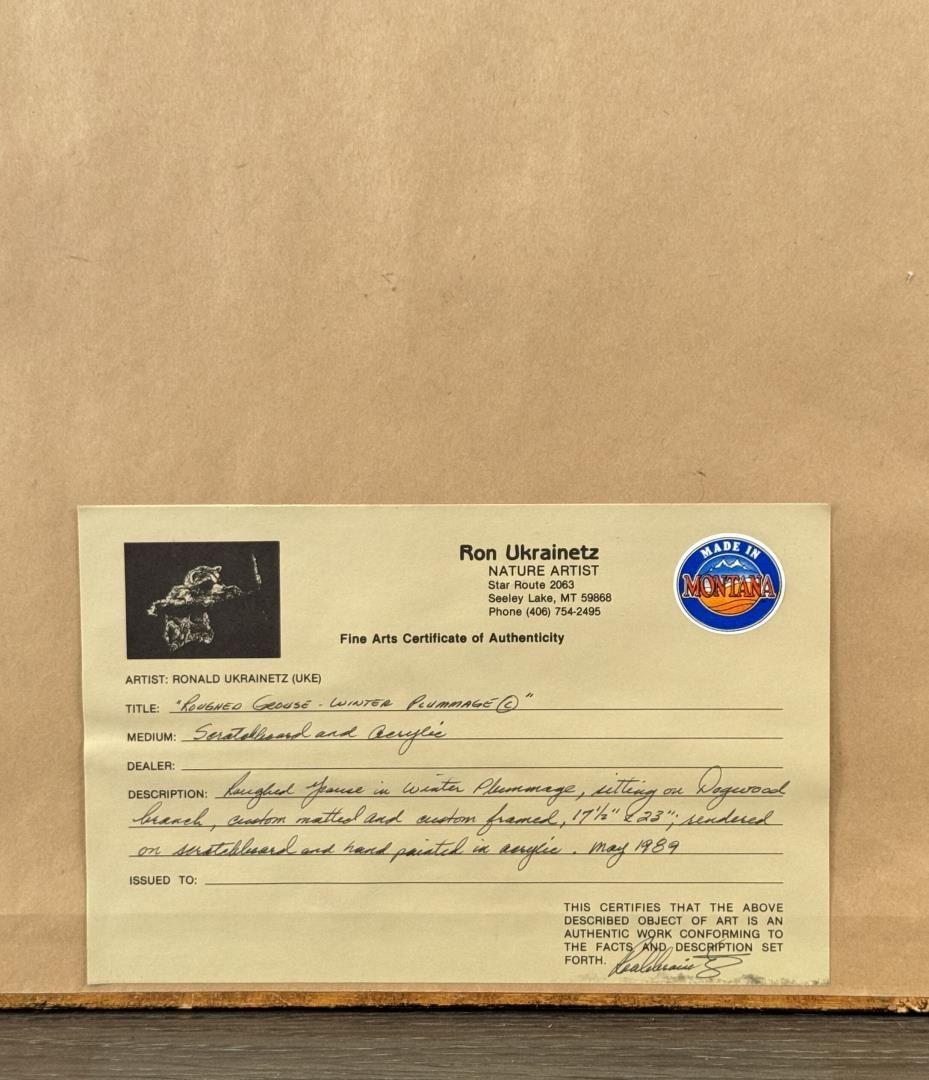 Ron Ukrainetz
NATURE ARTIST
Star Route 2063
Seeley Lake, MT 59868
Phone (406) 754-2495
MADE IN
MONTANA
Fine Arts Certificate of Authenticity
ARTIST: RONALD UKRAINETZ (UKE)
TITLE: "ROUGHED GROUSE - WINTER PLUMMAGE ©"
MEDIUM: Scratchboard and Acrylic
DEALER:
DESCRIPTION: Roughed Grouse in Winter Plummage, sitting on Dogwood
branch, custom matted and custom framed, 17½" x 23"; rendered
on scratchboard and hand painted in acrylic. May 1989
ISSUED TO:
THIS CERTIFIES THAT THE ABOVE
DESCRIBED OBJECT OF ART IS AN
AUTHENTIC WORK CONFORMING TO
THE FACTS AND DESCRIPTION SET
FORTH.